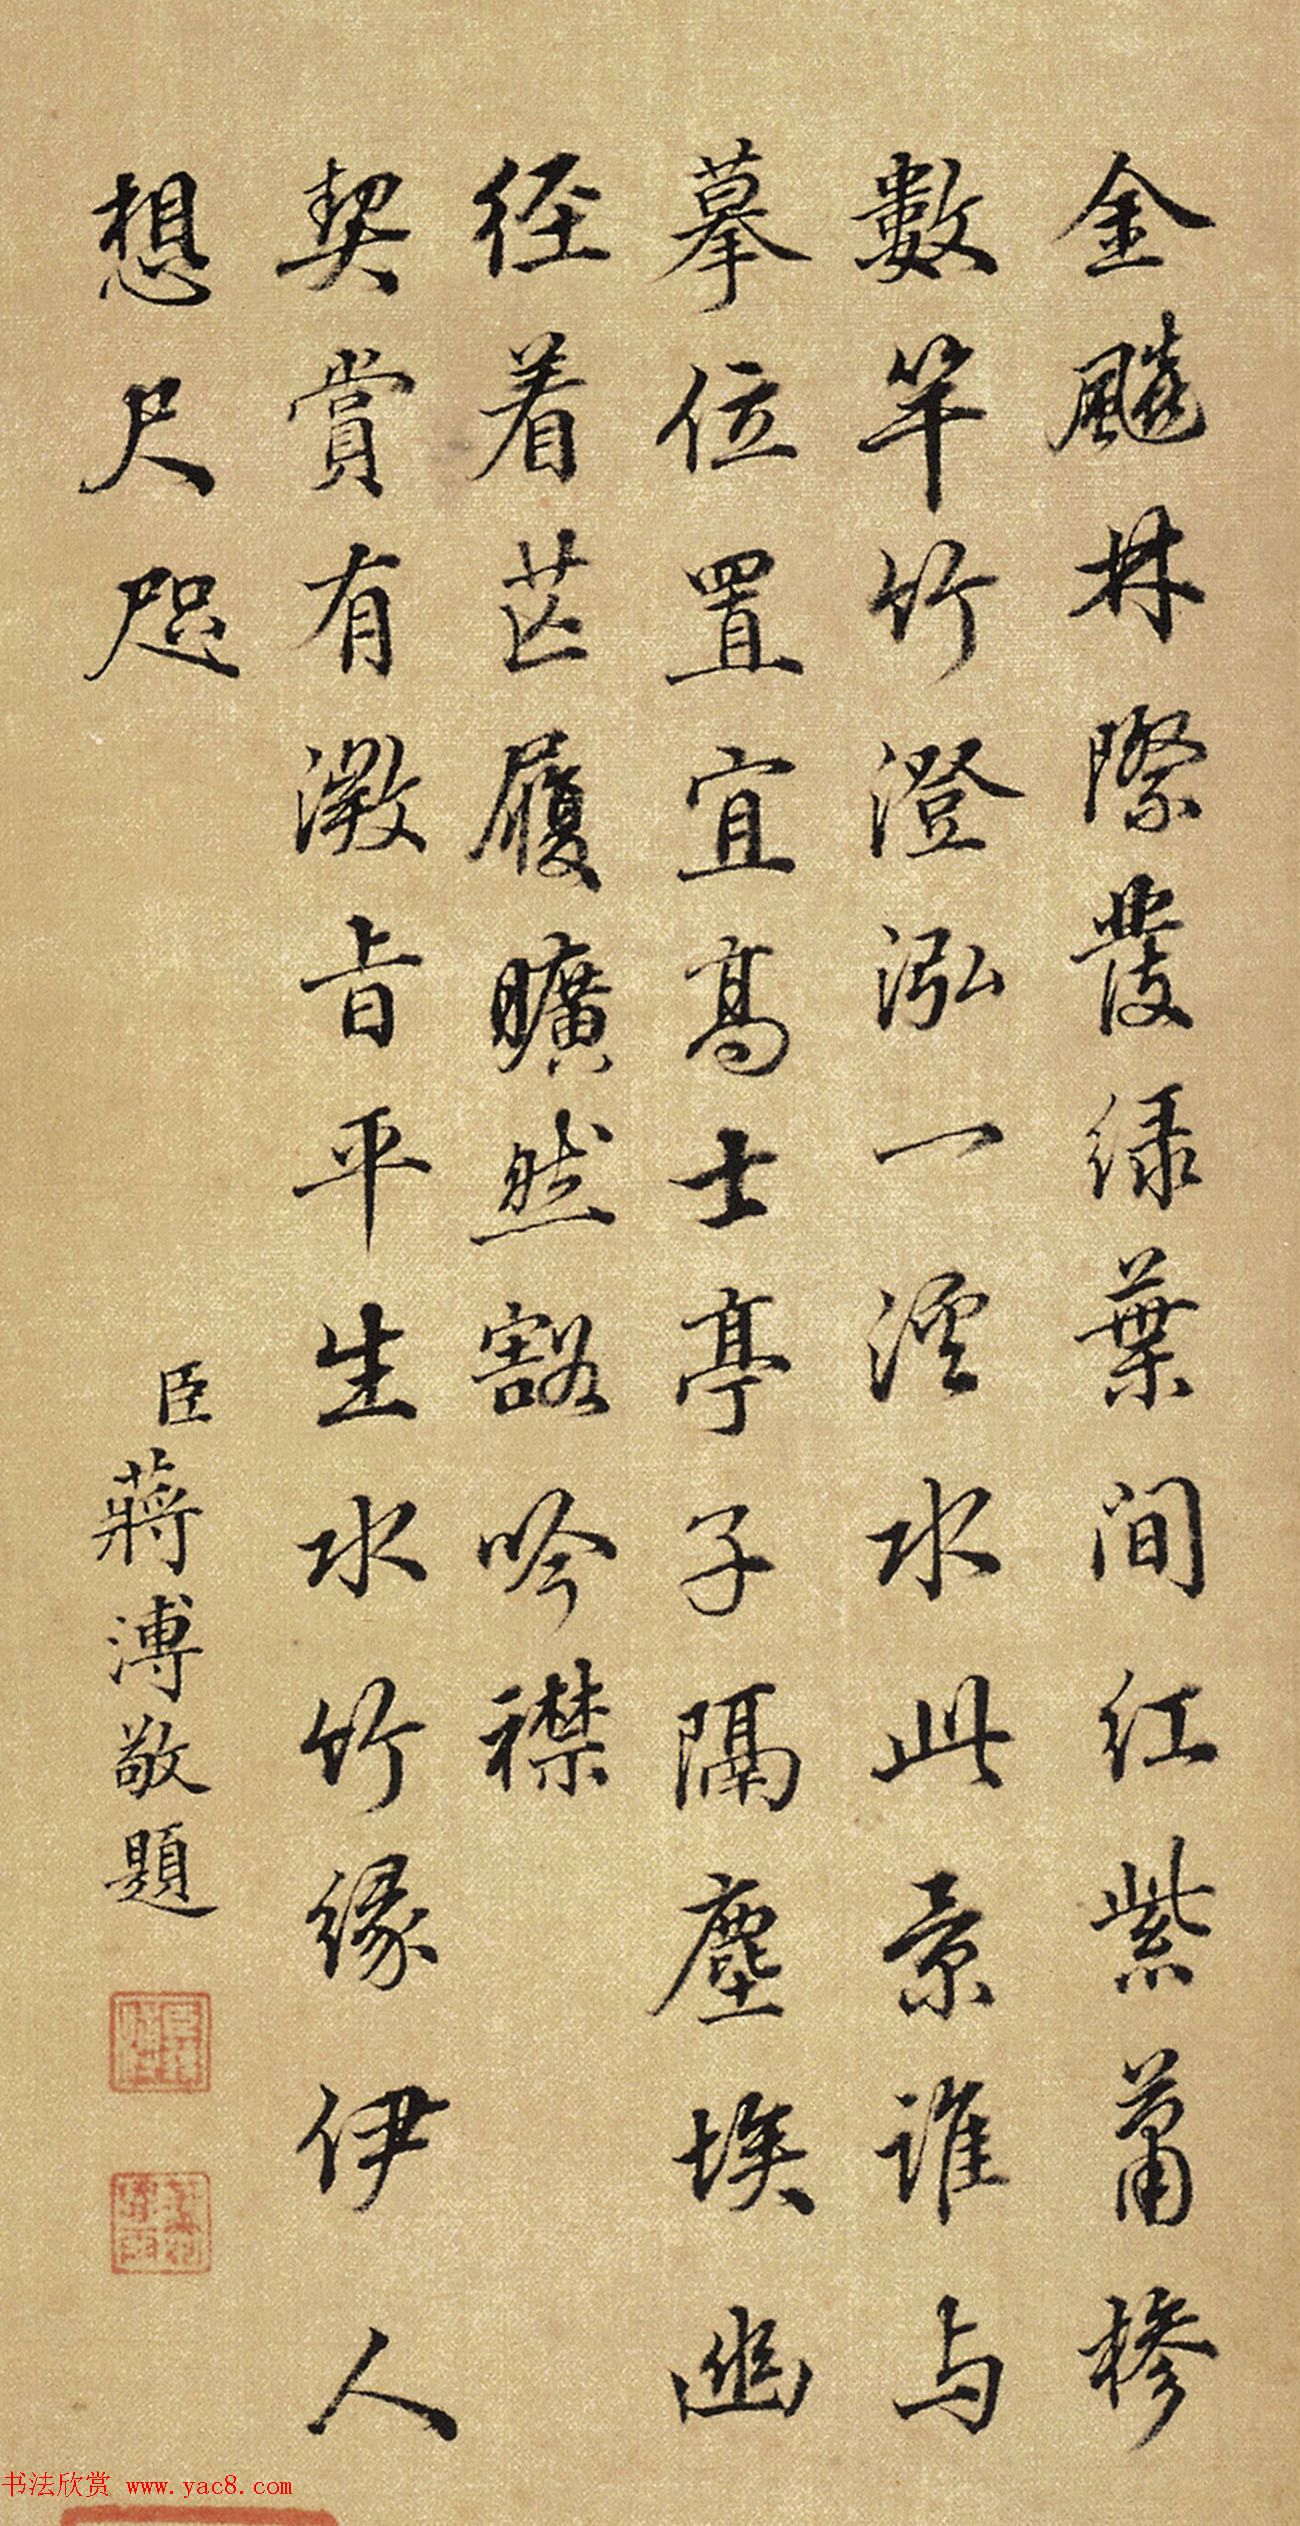 金飈林際發緑葉间红紫蕭椮
數竿竹澄泓一溪水此景誰与
摹位置宜高士亭子隔塵埃幽
径着芒履曠然豁吟襟
契賞有溦旨平生水竹緣伊人
想尺咫
臣蔣溥敬題
书法欣赏 www.yac8.com